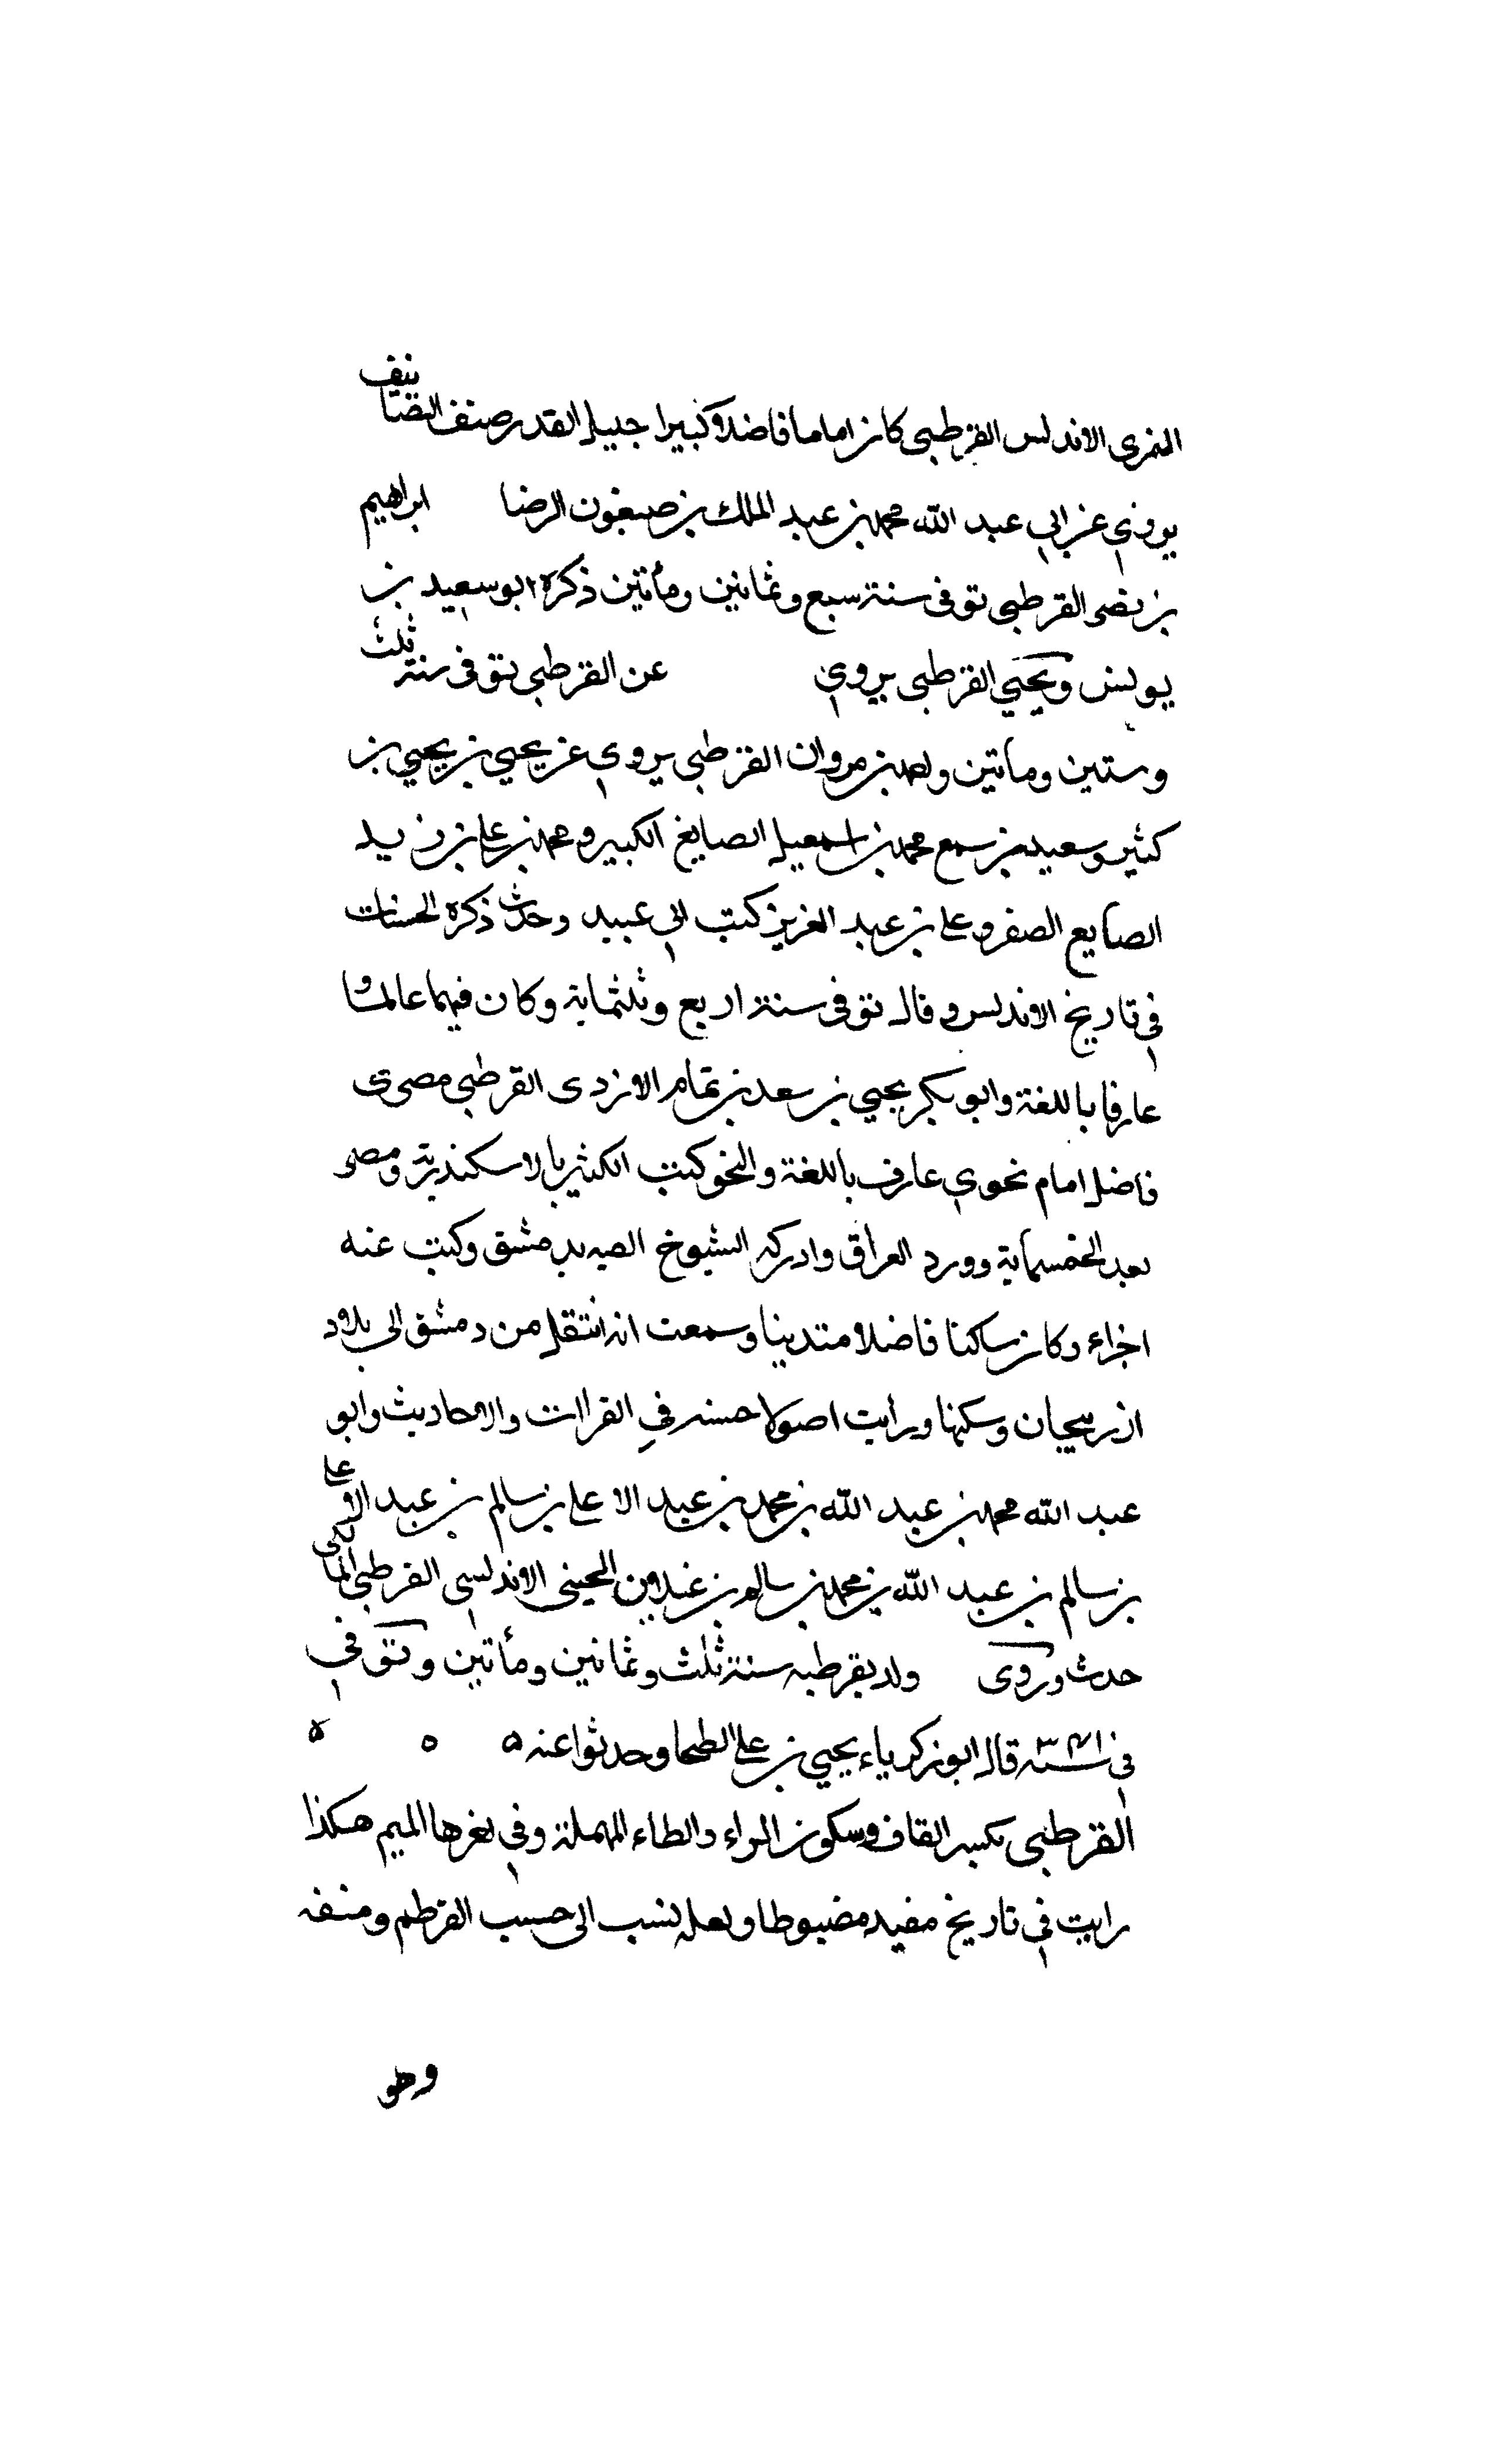 النمرى الاندلس القرطبى كان اماما فاضلا كبيرا جليل القدر صنف التصانيف
يروي عن ابي عبد الله محمد بن عبد الملك بن صيغون الرضا ابراهيم
بن نصر القرطبى توفى سنة سبع وثمانين ومأتين ذكره ابو سعيد بن
يونس ويحيي القرطبى يروي عن القرطبي توفى سنة ثلث
وستين وماتين ومحمد بن مروان القرطبى يروي عن يحيي بن يحيي بن
كثير وسعيد بن سمع محمد بن اسمعيل الصايغ الكبير ومحمد بن على بن زيد
الصايع الصغر وعلى بن عبد العزيز كتب ابي عبيد وحدث ذكره الحسنات
في تاريخ الاندلس وقال توفى سنة اربع وثلثماية وكان فيهما عالما و
عارفا باللغة وابو بكر يحيي بن سعد بن تمام الازدى القرطبي مصرى
فاضل امام نحوي عارف باللغة والنحو كتب الكثير بالاسكندرية ومصر
بعد الخمسماية وورد العراق وادرك الشيوخ بدمشق وكتب عنه
اجزاء وكان ساكنا فاضلا متدينا وسمعت انه انتقل من دمشق الى بلاد
اذربيجان وسكنها ورأيت اصولا حسنه في القراات والاحاديث وابو
عبد الله محمد بن عبد الله بن محمد بن عبد الاعلى بن سالم بن عبد الاعلى
بن سالم بن عبد الله بن محمد بن سالم بن غيدون الاندلسي القرطبي المالكى
حدث وروى ولد بقرطبه سنة ثلث وثمانين ومأتين وتوفى في
في سنة ٣٧١ قال ابو زكرياء يحيي بن على الطحا وحدثوا عنه ٥ ٥ ٥
القرطبى بكسر القاف وسكون الراء والطاء المهملة وفي اخرها الميم هكذا
رايت في تاريخ مفيد مضبوطا ولعله نسب الى حسب القرطم ومنفه
وهو